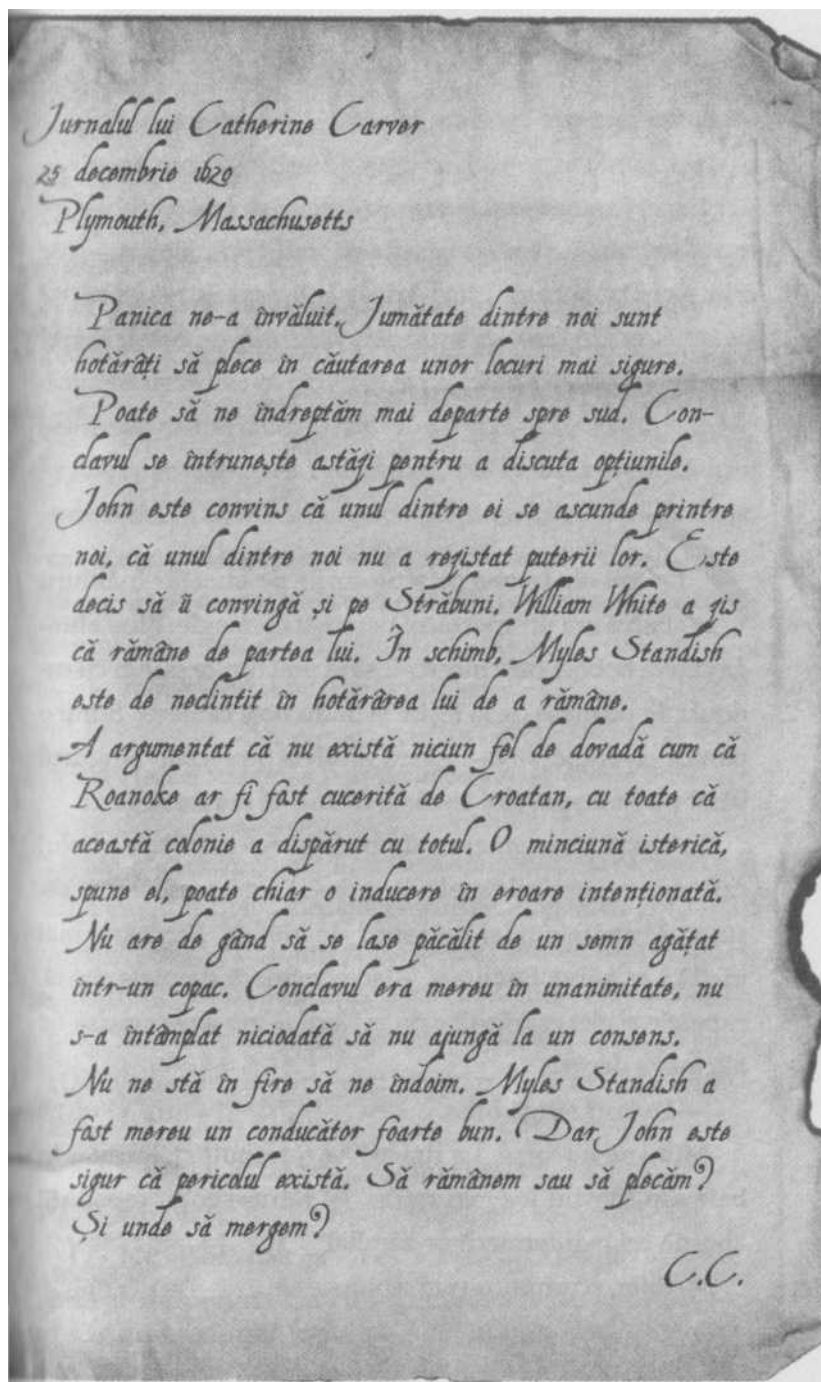 Jurnalul lui Catherine Carver
25 decembrie 1620
Plymouth, Massachusetts
Panica ne-a învăluit. Jumătate dintre noi sunt
hotărâți să plece în căutarea unor locuri mai sigure.
Poate să ne îndreptăm mai departe spre sud. Con-
clavul se întrunește astăzi pentru a discuta opțiunile.
John este convins că unul dintre ei se ascunde printre
noi, că unul dintre noi nu a rezistat puterii lor. Este
decis să îi convingă și pe Străbuni. William White a zis
că rămâne de partea lui. În schimb, Myles Standish
este de neclintit în hotărârea lui de a rămâne.
A argumentat că nu există niciun fel de dovadă cum că
Roanoke ar fi fost cucerită de Croatan, cu toate că
această colonie a dispărut cu totul. O minciună isterică,
spune el, poate chiar o inducere în eroare intenționată.
Nu are de gând să se lase păcălit de un semn agățat
într-un copac. Conclavul era mereu în unanimitate, nu
s-a întâmplat niciodată să nu ajungă la un consens.
Nu ne stă în fire să ne îndoim. Myles Standish a
fost mereu un conducător foarte bun. Dar John este
sigur că pericolul există. Să rămânem sau să plecăm?
Și unde să mergem?
C.C.